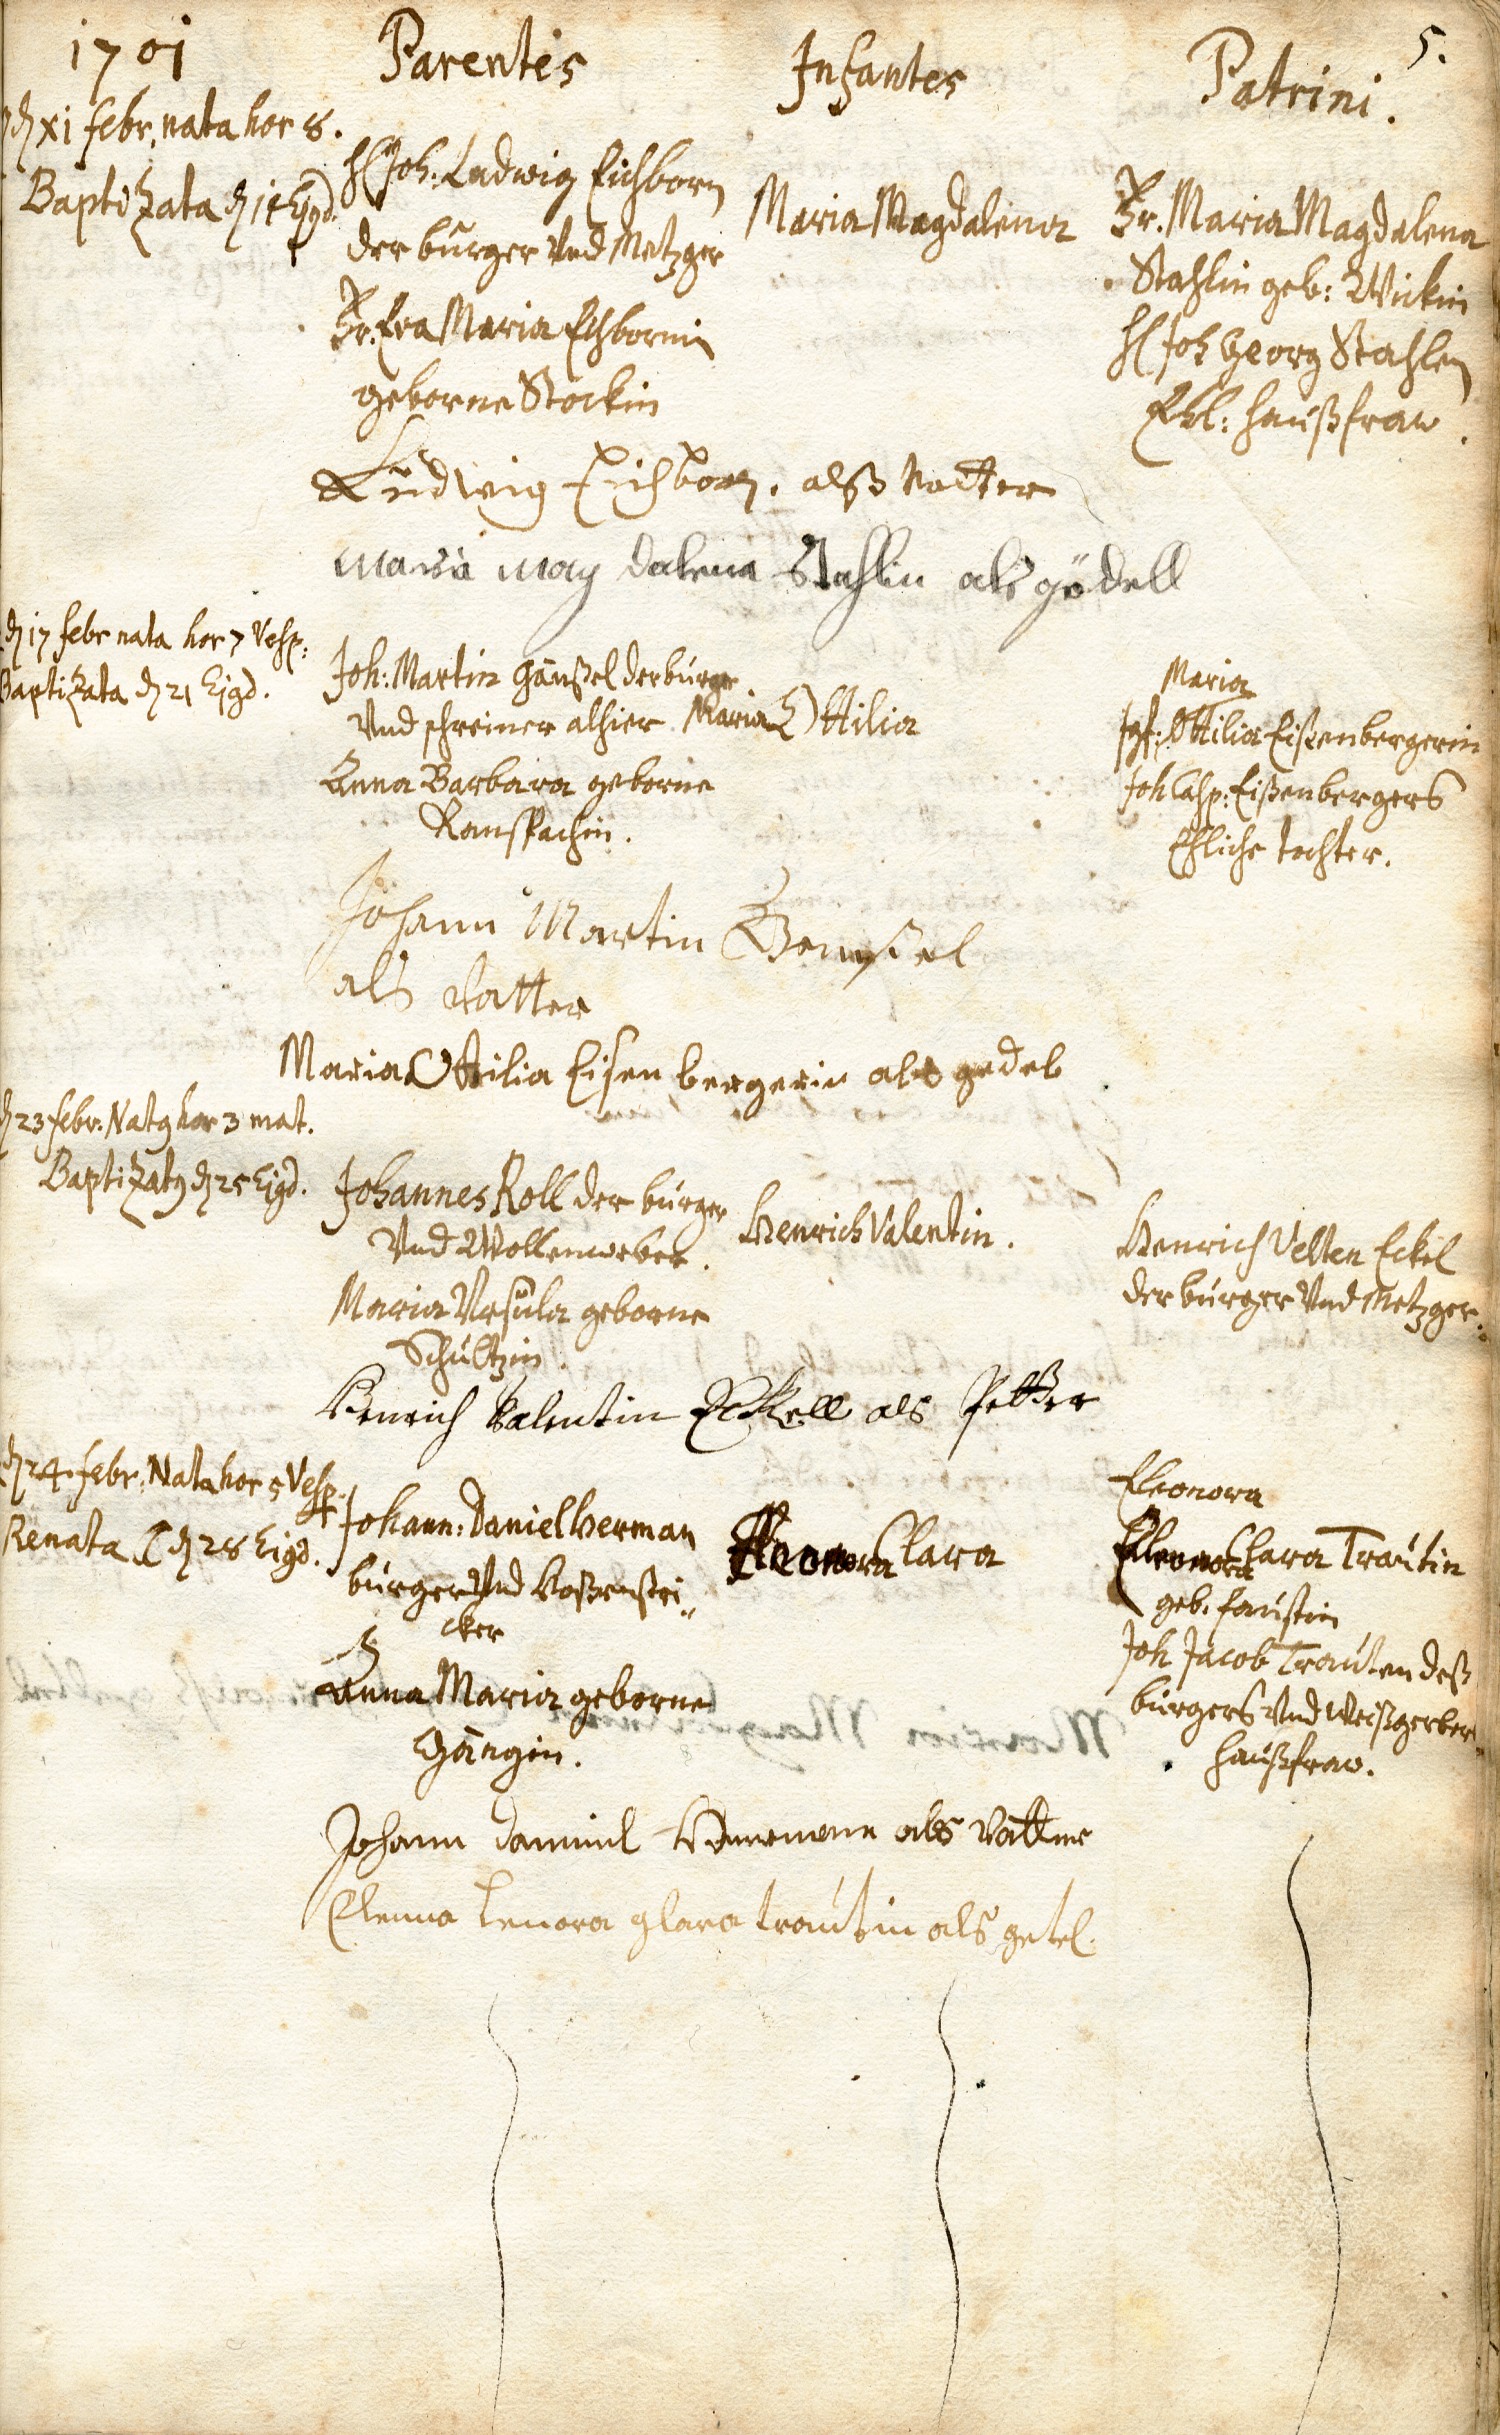 1701
Parentes
Infantes
Patrini.
5.
d. XI febr. nata hor 8.
Baptizata d. 15 Ejgd.
H Joh: Ludwig Eichborn
der bürger Und Metzger
Fr. Eva Maria Eichbornin
geborne Stockin
Maria Magdalena
Fr. Maria Magdalena
Stahlin geb: Wickin
H Joh Georg Stahlen
Ehl: haußfraw.
Ludwig Eichborn. alß Vatter
maria mag dalena Stahlin als gödell
d. 17 febr nata hor 7 Vesp:
Baptizata d. 21 Ejgd.
Joh: Martin Gänßel der bürger
Und schreiner alhier
Anna Barbara geborne
Ranspachin.
Maria Ottilia
Maria
Jgf: Ottilia Eißenbergerin
Joh Casp: Eißenbergers
Ehliche tochter.
Johann Martin Genßel
als Vatter
Maria Ottilia Eisen bergerin als gedel
d. 23 febr. Nat9 hor 3 mat.
Baptizat9 d. 25 Ejgd.
Johannes Roll der bürger
Und Wollenweber.
Maria Ursula geborne
Schültzin.
Henrich Valentin.
Henrich Velten Eckel
der bürger Und Metzger.
Henrich Valentin Eckell als Petter
d. 24. febr. Nata hor 5 Vesp.
Renata d. 28 Ejgd.
Johann: Daniel Herman
bürger Und Hoßenstri
cker
Anna Maria geborne
Gängin.
Eleonora Clara
Eleonora
Eleonora Clara Trautin
geb. faustin
Joh Jacob Trauten deß
bürgers Und Weißgerber
haußfraw.
Johann Daniel Herrmann als Vatter
Elenna Lenora glara trautin als getel.